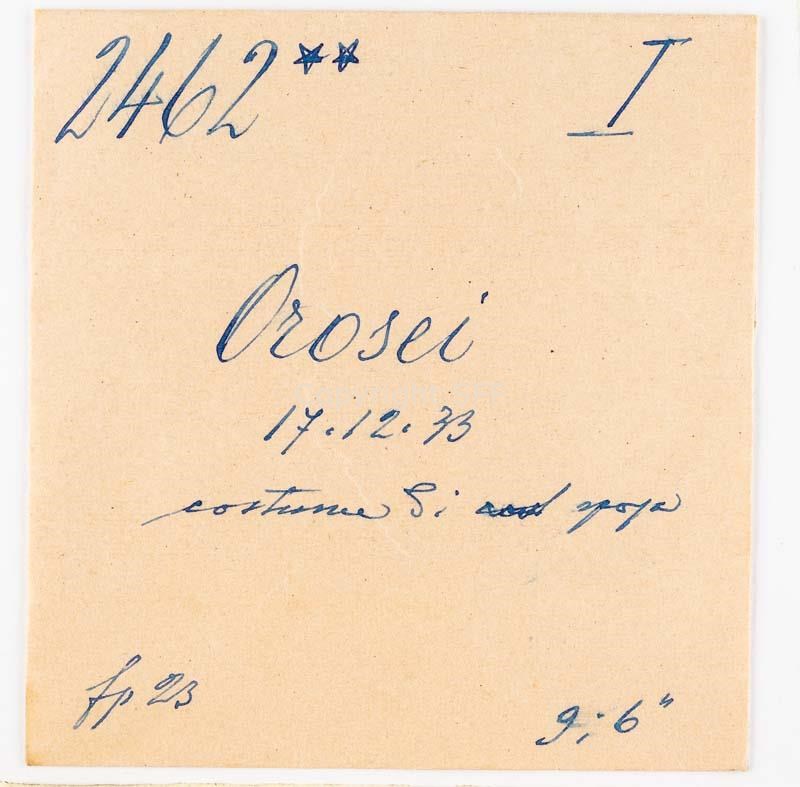 2462** I
Orosei
17.12.33
costume di sposa
fp 23
9;6"